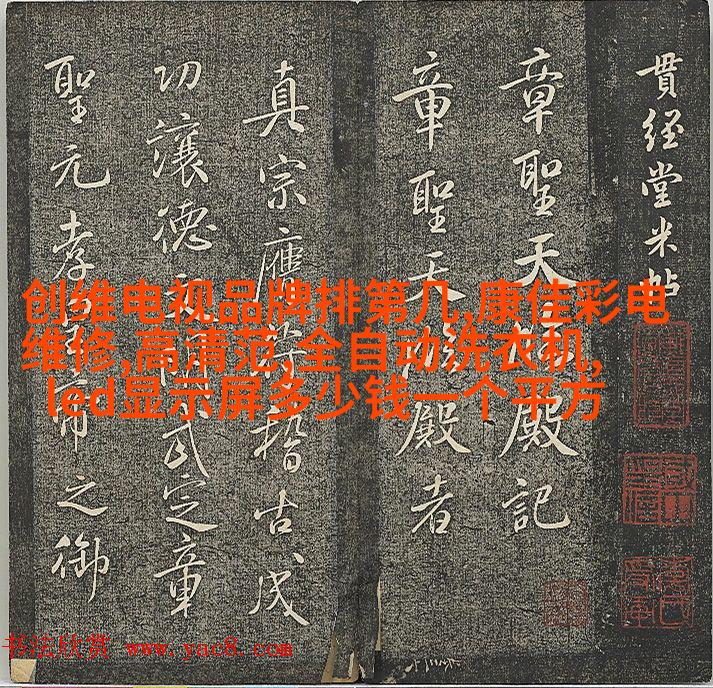 貫经堂米帖
章聖天殿記
章聖天殿者
真宗應稽古成
功讓德定章
聖元孝帝之御
创维电视品牌排第几,康佳彩电
维修,高清范,全自动洗衣机,
led显示屏多少钱一个平方
书法欣赏 www.yac8.com